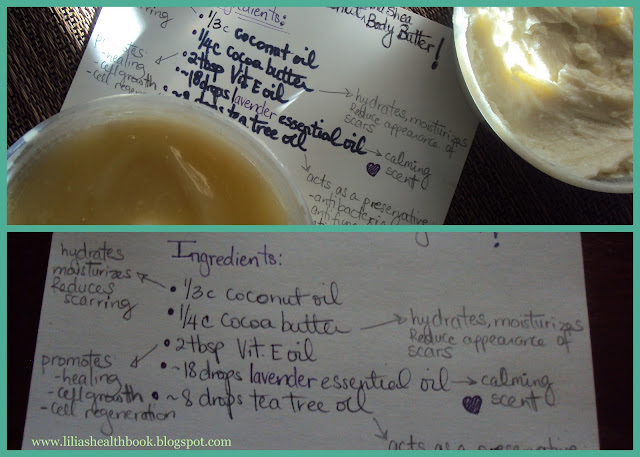 Shea
Body Butter!
scarring
Ingredients:
• 1/3c coconut oil
• 1/4c cocoa butter
• 2 tbsp Vit E oil
• ~18 drops lavender essential oil
• ~8 drops tea tree oil
promotes
- healing
- cell growth
- cell regeneration
hydrates, moisturizes
Reduce appearance of
scars
calming
scent
acts as a preservative
- antibacterial
Ingredients:
hydrates
moisturizes
Reduces
scarring
• 1/3 c coconut oil
• 1/4 c cocoa butter
hydrates, moisturizes
Reduce appearance of
scars
• 2 tbsp Vit. E oil
promotes
- healing
- cell growth
- cell regeneration
• ~18 drops lavender essential oil
calming
scent
• ~ 8 drops tea tree oil
acts as a preservative
www.liliashealthbook.blogspot.com